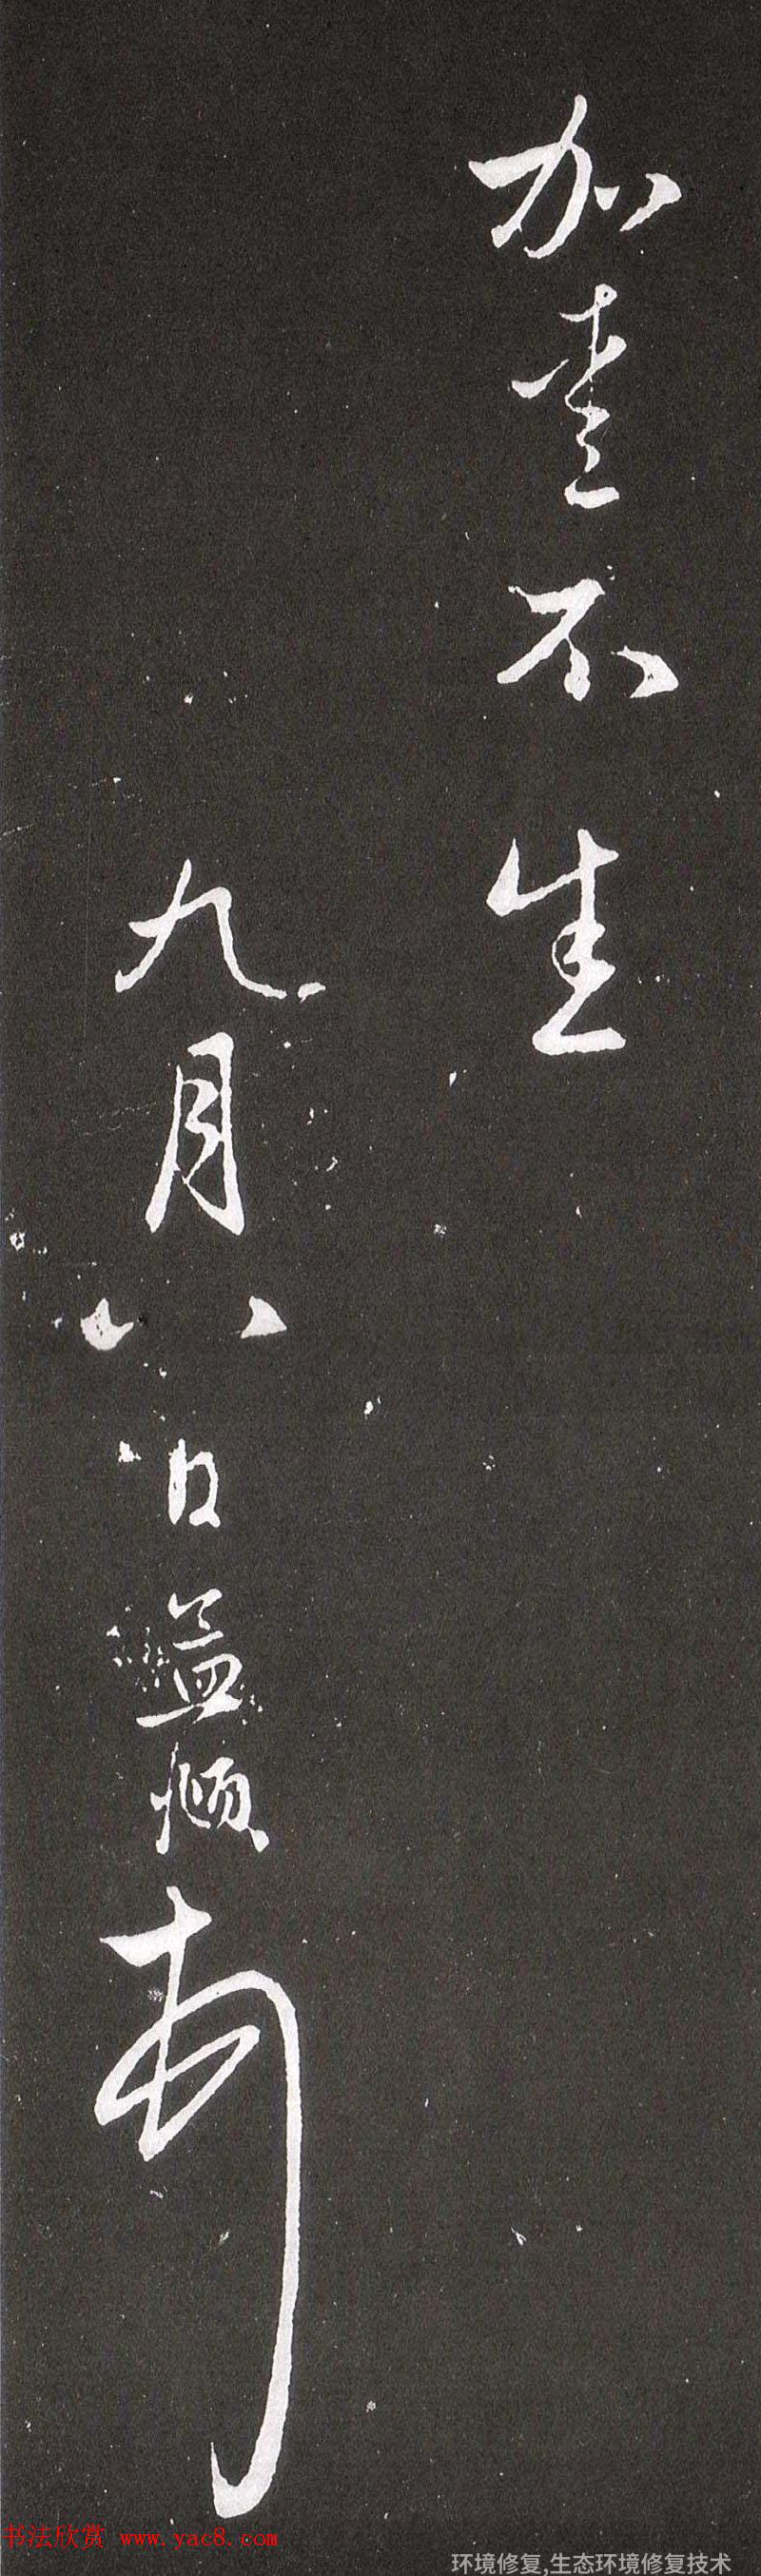 加不生
九月八日
书法欣赏 www.yac8.com
环境修复,生态环境修复技术